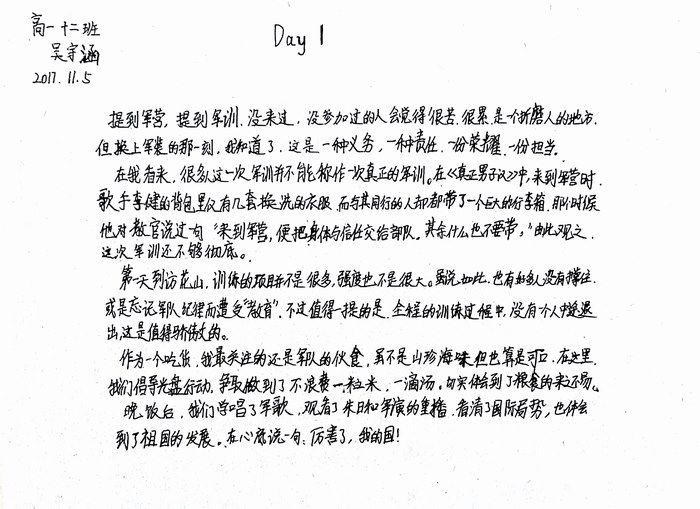 高一十二班
吴宇涵
2017.11.5
Day 1
提到军营，提到军训，没来过，没参加过的人会觉得很苦，很累，是个折磨人的地方，
但换上军装的那一刻，我知道了，这是一种义务，一种责任，一份荣耀，一份担当。
在我看来，很多这一次军训并不能称作一次真正的军训。在《真正男子汉》中，来到军营时
歌手李健的背包里仅有几套换洗的衣服，而与其同行的人却都带了一个巨大的行李箱，那个时候
他对教官说过一句“来到军营，便把身体与信任交给部队。其余什么也不要带，”由此观之，
这次军训还不够彻底。
第一天到访花山，训练的项目并不是很多，强度也不是很大。虽说如此，也有好多人没有撑住
或是忘记军队纪律而遭受“教育”，不过值得一提的是，全程的训练过程中，没有个人中途退
出，这是值得骄傲的。
作为一个吃货，我最关注的还是军队的伙食，虽不是山珍海味，但也算是可口，在这里，
我们倡导光盘行动，争取做到了不浪费一粒米，一滴汤。切实体会到了粮食的来之不易。
晚饭后，我们学唱了军歌，观看了朱日和军演的重播，看清了国际局势，也体会
到了祖国的发展。在心底说一句：厉害了，我的国！